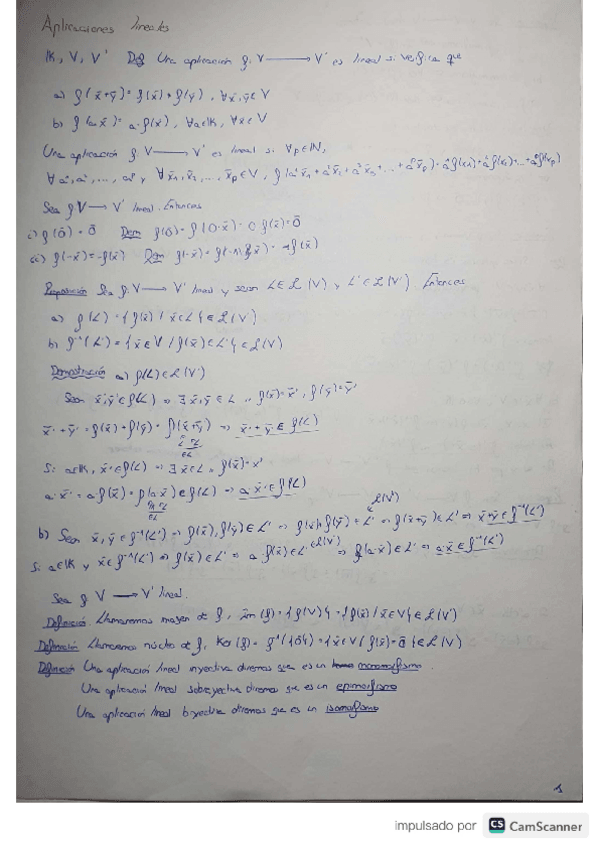 Aplicaciones lineales
K, V, V' Def Una aplicación f: V → V' es lineal si verifica que
a) f(x̄+ȳ) = f(x̄) + f(ȳ), ∀x̄,ȳ∈V
b) f(a·x̄) = a·f(x̄), ∀a∈K, ∀x∈V
Una aplicación f: V → V' es lineal si ∀p∈N,
∀ a¹, a², ..., aᵖ y ∀x̄₁, x̄₂, ..., x̄ₚ∈V, f(a¹x̄₁+a²x̄₂+a³x̄₃+...+aᵖx̄ₚ) = a¹f(x̄₁)+a²f(x̄₂)+...+aᵖf(x̄ₚ)
Sea f V → V' lineal. Entonces
i) f(ō) = ō Dem f(ō) = f(0·x̄) = 0 f(x̄) = ō
ii) f(-x̄) = -f(x̄) Dem f(-x̄) = f(-1)x̄ = -1f(x̄)
Proposición Sea f: V → V' lineal y sean L∈ℒ(V) y L'∈ℒ(V') Entonces
a) f(L) = {f(x̄) / x̄∈L} ∈ ℒ(V')
b) f⁻¹(L') = {x̄∈V / f(x̄)∈L'} ∈ ℒ(V)
Demostración a) f(L)∈ℒ(V')
Sean x̄',ȳ'∈f(L) ⇒ ∃x̄,ȳ∈L f(x̄)=x̄', f(ȳ)=ȳ'
x̄'+ȳ' = f(x̄)+f(ȳ) = f(x̄+ȳ) ⇒ x̄'+ȳ'∈f(L)
∈L
Si a∈K, x̄'∈f(L) ⇒ ∃x̄∈L f(x̄)=x'
a·x̄' = a·f(x̄) = f(a·x̄)∈f(L) ⇒ a·x̄'∈f(L)
∈L
ℒ(V')
b) Sean x̄,ȳ∈f⁻¹(L') ⇒ f(x̄),f(ȳ)∈L' ⇒ f(x̄)+f(ȳ)∈L' ⇒ f(x̄+ȳ)∈L' ⇒ x̄+ȳ∈f⁻¹(L')
Si a∈K y x̄∈f⁻¹(L') ⇒ f(x̄)∈L' ⇒ a·f(x̄)∈L'∈ℒ(V') ⇒ f(a·x̄)∈L' ⇒ a·x̄∈f⁻¹(L')
Sea f V → V' lineal.
Definición. Llamaremos imagen de f, Im(f) = {f(V)} = {f(x̄) / x̄∈V} ∈ ℒ(V')
Definición Llamaremos núcleo de f, Ker(f) = f⁻¹({ō}) = {x̄∈V / f(x̄)=ō} ∈ ℒ(V)
Definición Una aplicación lineal inyectiva diremos que es un monomorfismo.
Una aplicación lineal sobreyectiva diremos que es un epimorfismo
Una aplicación lineal biyectiva diremos que es un isomorfismo
1
impulsado por CS CamScanner